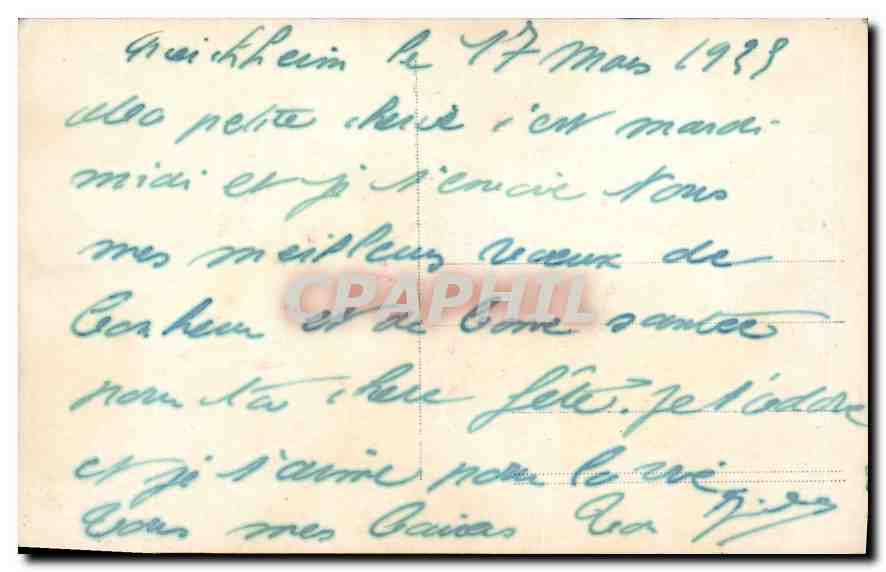 le 17 Mars 1933
Ma petite cherie c'est mardi
midi et je t'envoie tous
mes meilleurs voeux de
CPAPHIL
bonheur et de bonne santée
pour ta chere fête. Je t'adore
et je t'aime pour la vie
Tous mes baisers Ton